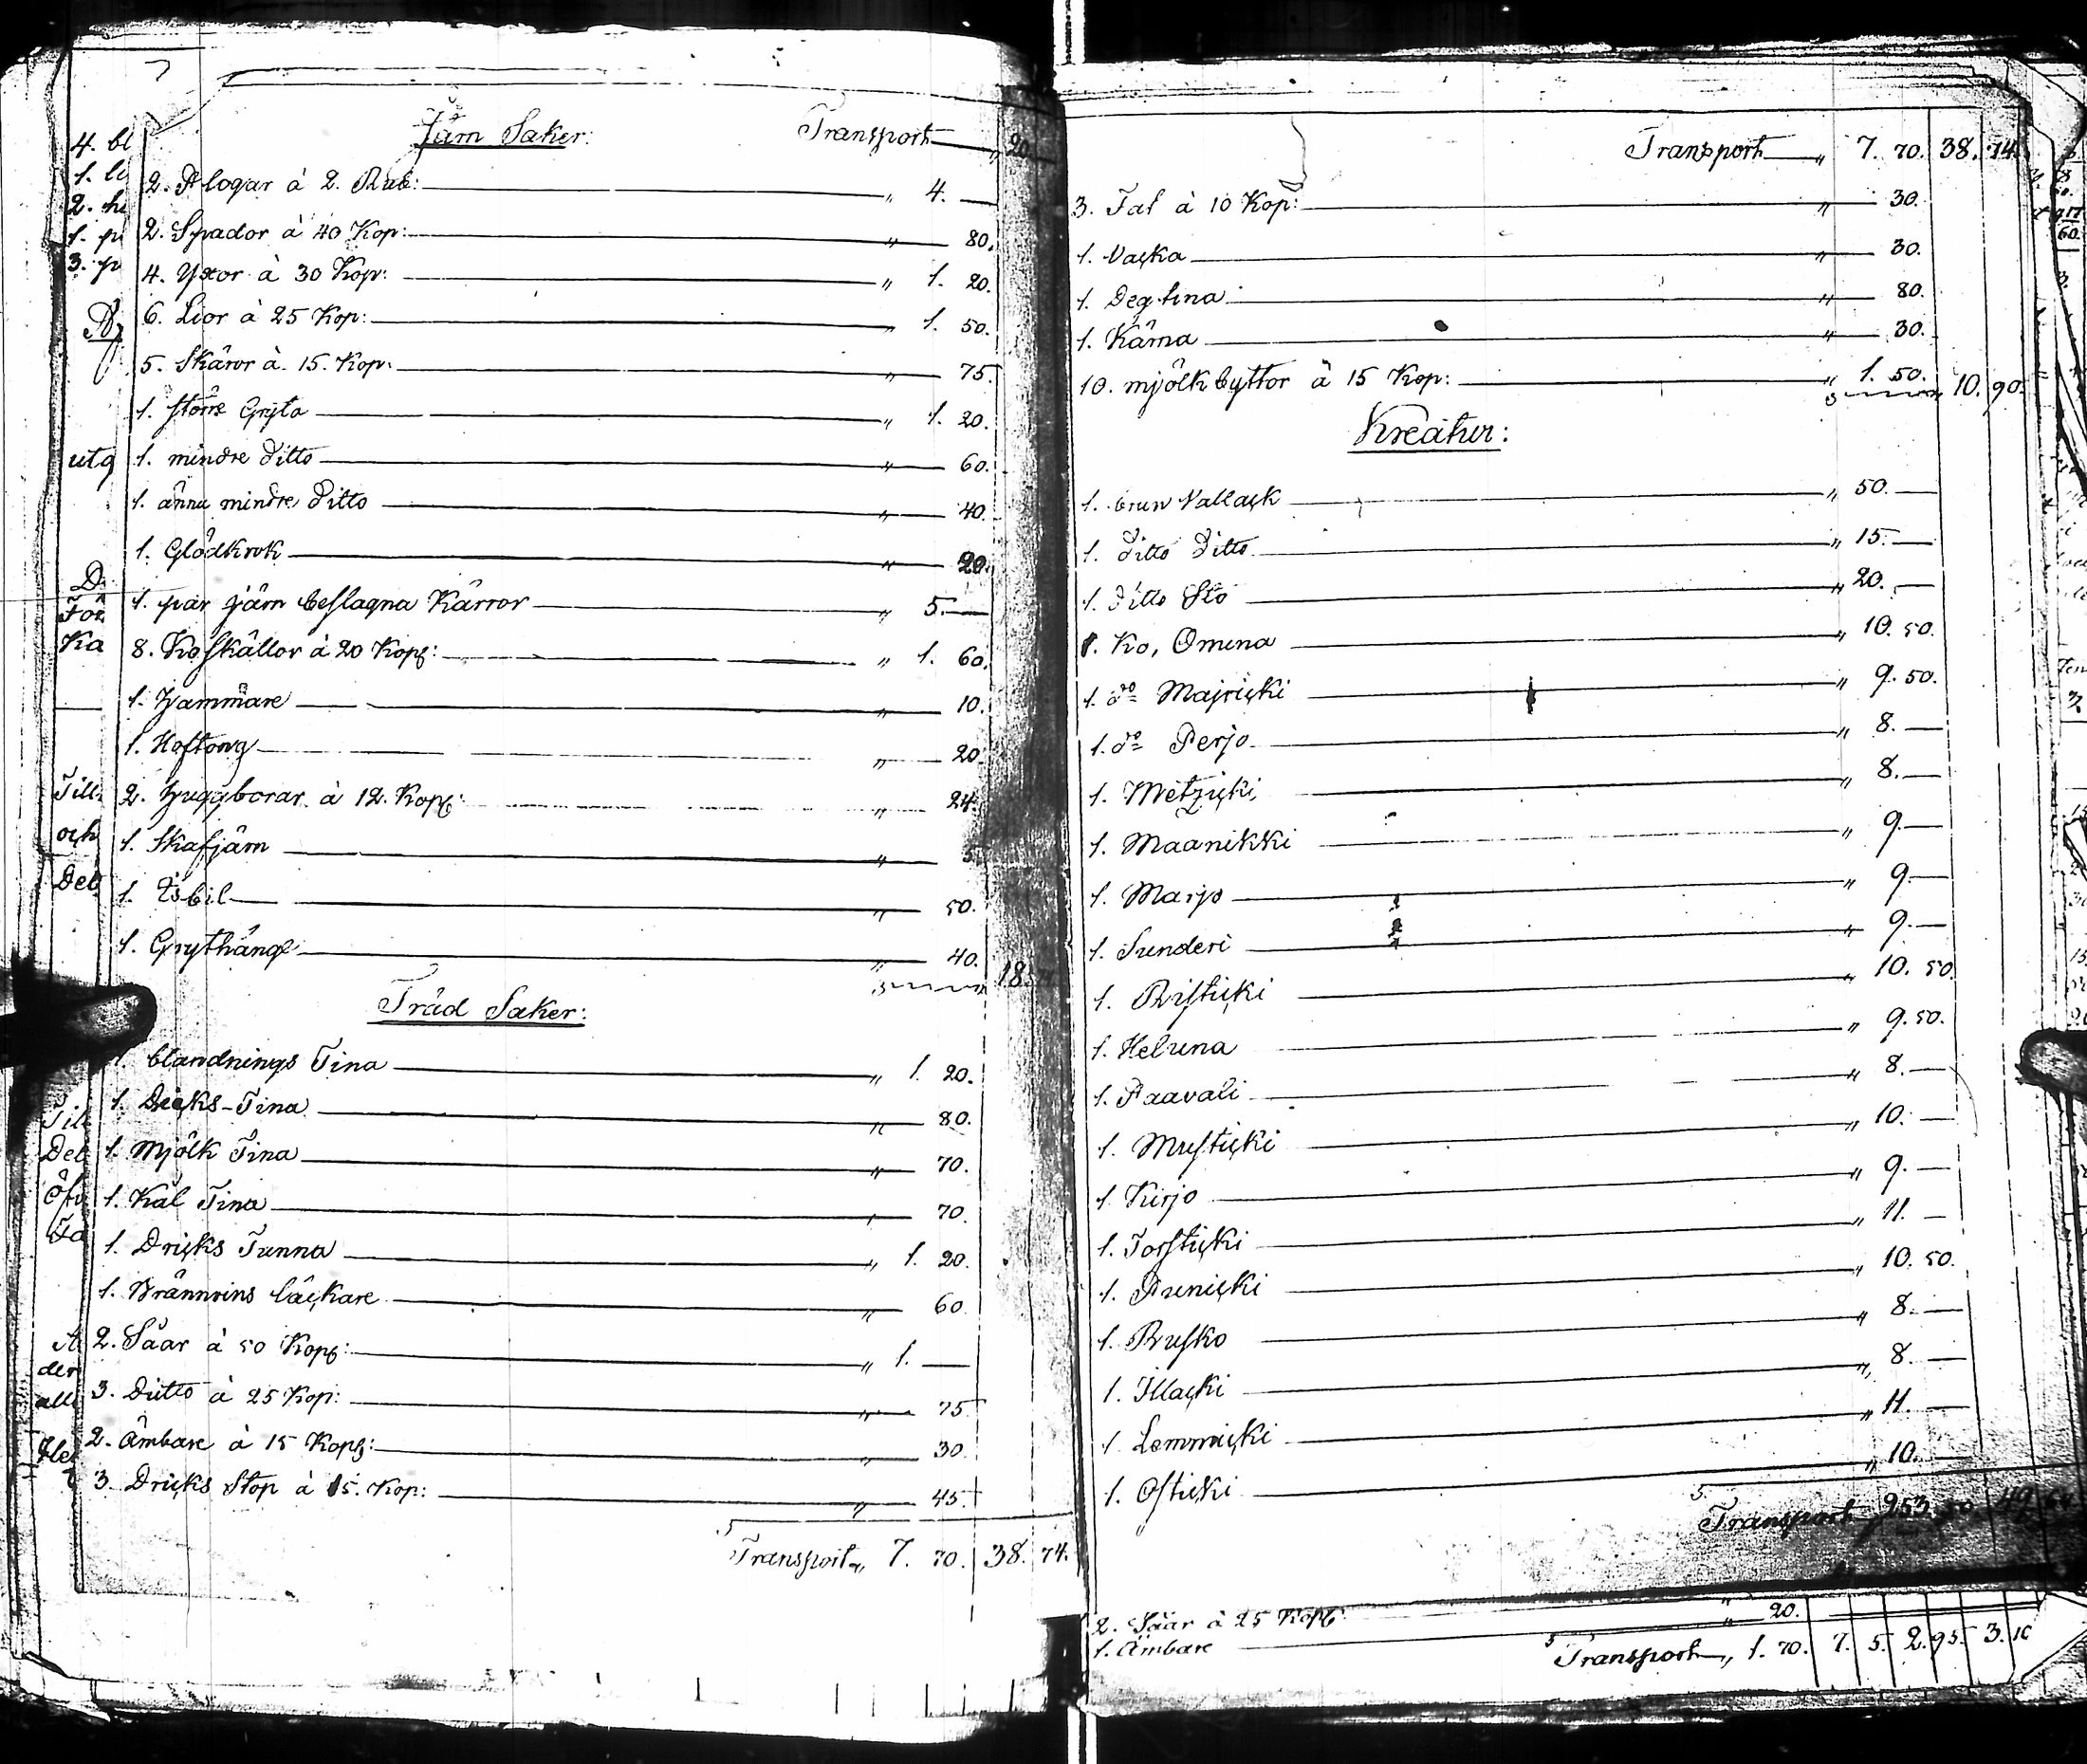 Järn Saker: Transport " 20
2. Plogar à 2. Rub: " 4. —
2. Spador à 40 Kop: " 80.
4. Yxor à 30 Kop: " 1. 20.
6. Lior à 25 Kop: " 1. 50.
5. Skäror à 15. Kop: " 75.
1. större Gryta " 1. 20.
1. mindre Ditto " 60.
1. ännu mindre Ditto " 40.
1. Glödkrok " 20.
1. par järn beslagna Kärror " 5. —
8. Koskällor à 20 Kop: " 1. 60.
1. Hammare " 10.
1. Hoftong " 20
2. Huggborar à 12. Kop: " 24.
1. Skafjärn " 5
1. Isbil " 50.
1. Grythänge " 40. 18.
Träd Saker:
1. blandnings Tina " 1. 20.
1. Dricks-Tina " 80.
1. Mjölk Tina " 70.
1. Kål Tina " 70.
1. Dricks Tunna " 1. 20.
1. Bränvins läckare " 60
2. Såar à 50 Kop: " 1. —
3. Ditto à 25 Kop: " 75
2. Ämbare à 15 Kop: " 30
3. Dricks Stop à 15. Kop: " 45
Transport " 7. 70. 38. 74.
4. bl
1. li
2. he
utg
Ka
Till
och
Deb
Deb
der
Transport " 7. 70. 38. 74
3. Fat à 10 Kop: " 30.
1. Vacka " 30.
1. Degtina " 80.
1. Kärna " 30.
10. mjölk byttor à 15 Kop: " 1. 50. 10. 90.
Kreatur:
1. brun Vallack " 50. —
1. Ditto Ditto " 15. —
1. Ditto Sto " 20. —
1. Ko, Omena " 10. 50.
1. do Majricki " 9. 50.
1. do Perjo " 8. —
1. Metzicki " 8. —
1. Maanikki " 9. —
1. Marjo " 9. —
1. Sunderi " 9. —
1. Risticki " 10. 50
1. Heluna " 9. 50.
1. Paavali " 8. —
1. Musticki " 10. —
1. Kirjo " 9. —
1. Torsticki " 11. —
1. Punicki " 10. 50.
1. Rusko " 8. —
1. Illacki " 8. —
1. Lemmicki " 11. —
1. Osticki " 10. —
Transport " 253. 50. 49. 64
2. Såar à 25 Kop:
1. Ämbare " 20.
Transport " 1. 70. 7. 5. 2. 95. 3. 10